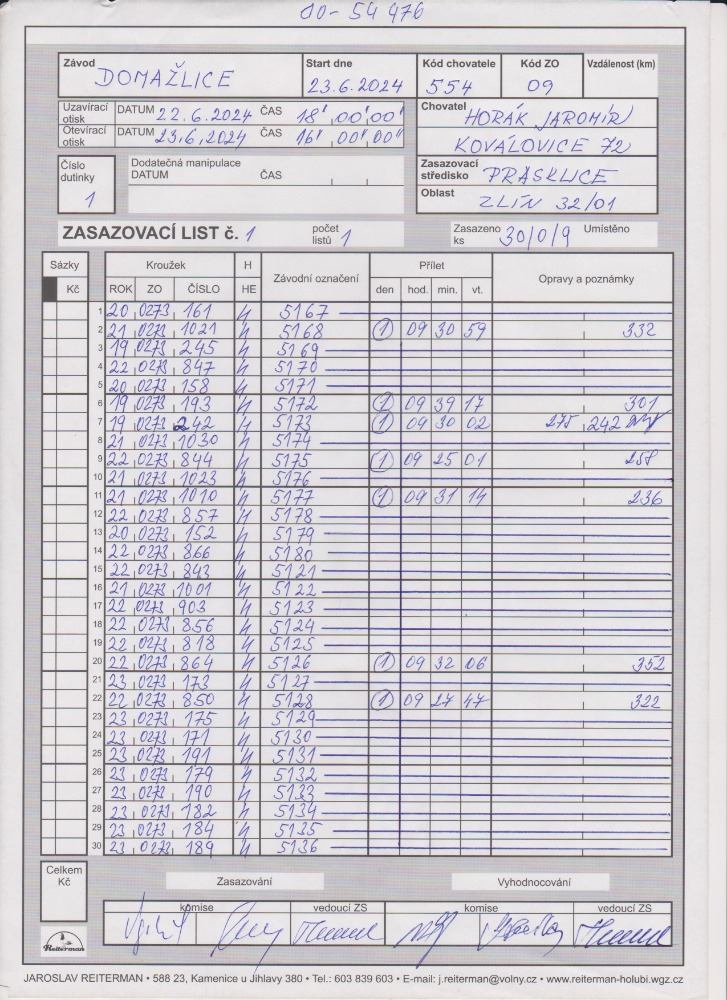 10-54 476
Závod Start dne Kód chovatele Kód ZO Vzdálenost (km)
DOMAŽLICE 23.6.2024 554 09
Uzavírací otisk DATUM 22.6.2024 ČAS 18' 00' 00" Chovatel HORÁK JAROMÍR
Otevírací otisk DATUM 23.6.2024 ČAS 16' 00' 00" KOVÁLOVICE 72
Číslo dutinky 1 Dodatečná manipulace DATUM ČAS Zasazovací středisko PRASKLICE
Oblast ZLÍN 32/01
ZASAZOVACÍ LIST č. 1 počet listů 1 Zasazeno ks 30/0/9 Umístěno
Sázky Kroužek H Závodní označení Přílet Opravy a poznámky
Kč ROK ZO ČÍSLO HE den hod. min. vt.
1 20 0273 161 H 5167
2 21 0273 1021 H 5168 1 09 30 59 332
3 19 0273 245 H 5169
4 22 0273 847 H 5170
5 20 0273 158 H 5171
6 19 0273 193 H 5172 1 09 39 17 301
7 19 0273 242 H 5173 1 09 30 02 275 242
8 21 0273 1030 H 5174
9 22 0273 844 H 5175 1 09 25 01 258
10 21 0273 1023 H 5176
11 21 0273 1010 H 5177 1 09 31 14 236
12 22 0273 857 H 5178
13 20 0273 152 H 5179
14 22 0273 866 H 5180
15 22 0273 843 H 5121
16 21 0273 1001 H 5122
17 22 0273 903 H 5123
18 22 0273 856 H 5124
19 22 0273 818 H 5125
20 22 0273 864 H 5126 1 09 32 06 352
21 23 0273 173 H 5127
22 22 0273 850 H 5128 1 09 27 47 322
23 23 0273 175 H 5129
24 23 0273 171 H 5130
25 23 0273 191 H 5131
26 23 0273 179 H 5132
27 23 0273 190 H 5133
28 23 0273 182 H 5134
29 23 0273 184 H 5135
30 23 0273 189 H 5136
Celkem Kč Zasazování Vyhodnocování
komise vedoucí ZS komise vedoucí ZS
Reiterman
JAROSLAV REITERMAN • 588 23, Kamenice u Jihlavy 380 • Tel.: 603 839 603 • E-mail: j.reiterman@volny.cz • www.reiterman-holubi.wgz.cz